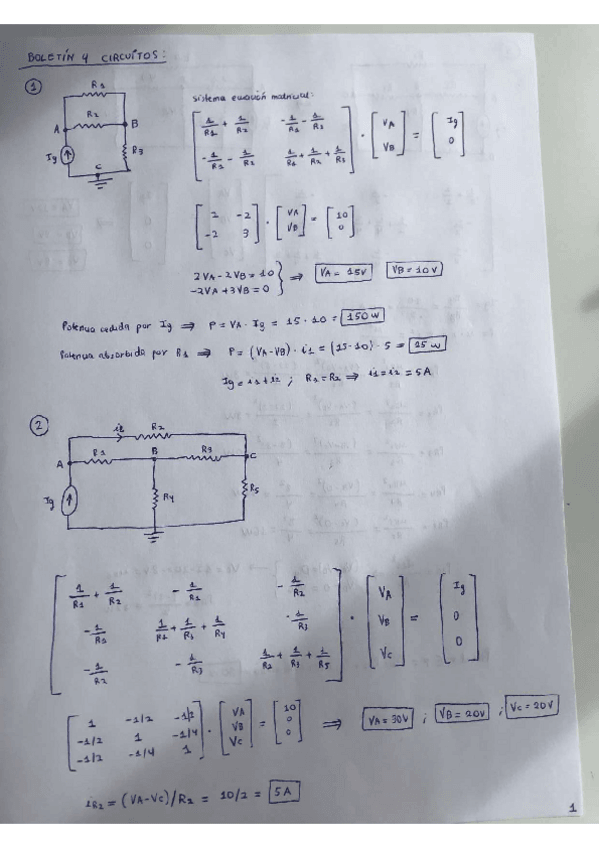 BOLETÍN 4 CIRCUÍTOS:
1
R1
R2
A
B
R3
Ig
C
Sistema ecuación matricial:
[ 1/R1 + 1/R2   -1/R1 - 1/R2 ]   [ VA ]   [ Ig ]
[ -1/R1 - 1/R2   1/R1 + 1/R2 + 1/R3 ] · [ VB ] = [ 0 ]
[ 2   -2 ]   [ VA ]   [ 10 ]
[ -2   3 ] · [ VB ] = [ 0 ]
2VA - 2VB = 10
-2VA + 3VB = 0 } ⟹ VA = 15V   VB = 10V
Potencia cedida por Ig ⟹ P = VA · Ig = 15 · 10 = 150 W
Potencia absorbida por R1 ⟹ P = (VA-VB) · i1 = (15-10) · 5 = 25 W
Ig = i1 + i2 ; R1 = R2 ⟹ i1 = i2 = 5A
2
R2
A
R1
B
R3
C
Ig
R4
R5
[ 1/R1 + 1/R2   -1/R1   -1/R2 ]   [ VA ]   [ Ig ]
[ -1/R1   1/R1 + 1/R3 + 1/R4   -1/R3 ] · [ VB ] = [ 0 ]
[ -1/R2   -1/R3   1/R2 + 1/R3 + 1/R5 ]   [ VC ]   [ 0 ]
[ 1   -1/2   -1/2 ]   [ VA ]   [ 10 ]
[ -1/2   1   -1/4 ] · [ VB ] = [ 0 ] ⟹ VA = 30V ; VB = 20V ; VC = 20V
[ -1/2   -1/4   1 ]   [ VC ]   [ 0 ]
iR2 = (VA-VC)/R2 = 10/2 = 5A
1